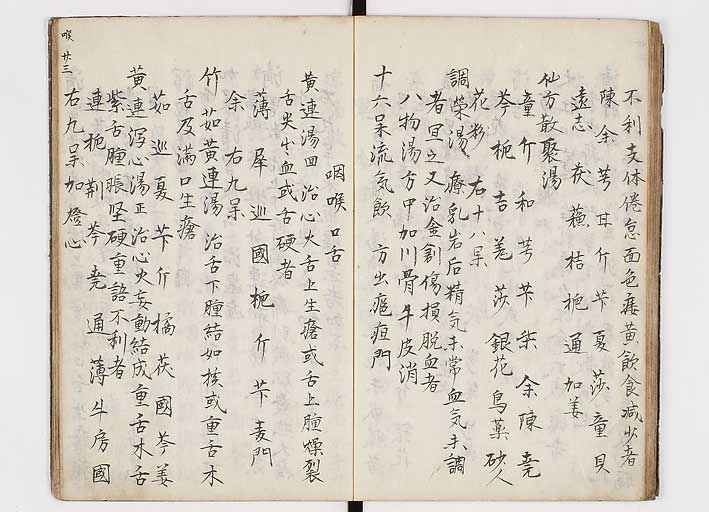 不利支体倦怠面色痿黄飲食減少者
陳余芎甘介芐夏莎童貝
遠志茯蘓桔梔通加姜
仙方散聚湯
童介和芎芐柴余陳尭
芩梔吉羌莎銀花烏薬砂人
花彩右十八呆
調榮湯療乳岩后精気未常血気未調
者冝之又治金創傷損脱血者
八物湯方中加川骨牛皮消
十六呆流気飲方出瘟疽門
咽喉口舌
黄連湯回治心火舌上生瘡或舌上腫燥裂
舌尖生血或舌硬者
薄犀巡國梔介芐麦門
余右九呆
竹茹黄連湯治舌下腫結如核或重舌木
舌及満口生瘡
茹巡夏芐介橘茯國芩姜
黄連瀉心湯正治心火妄動結成重舌木舌
紫舌腫脹坚硬重語不利者
連梔荆芩尭通薄牛房國
右九呆加燈心
喉廿三